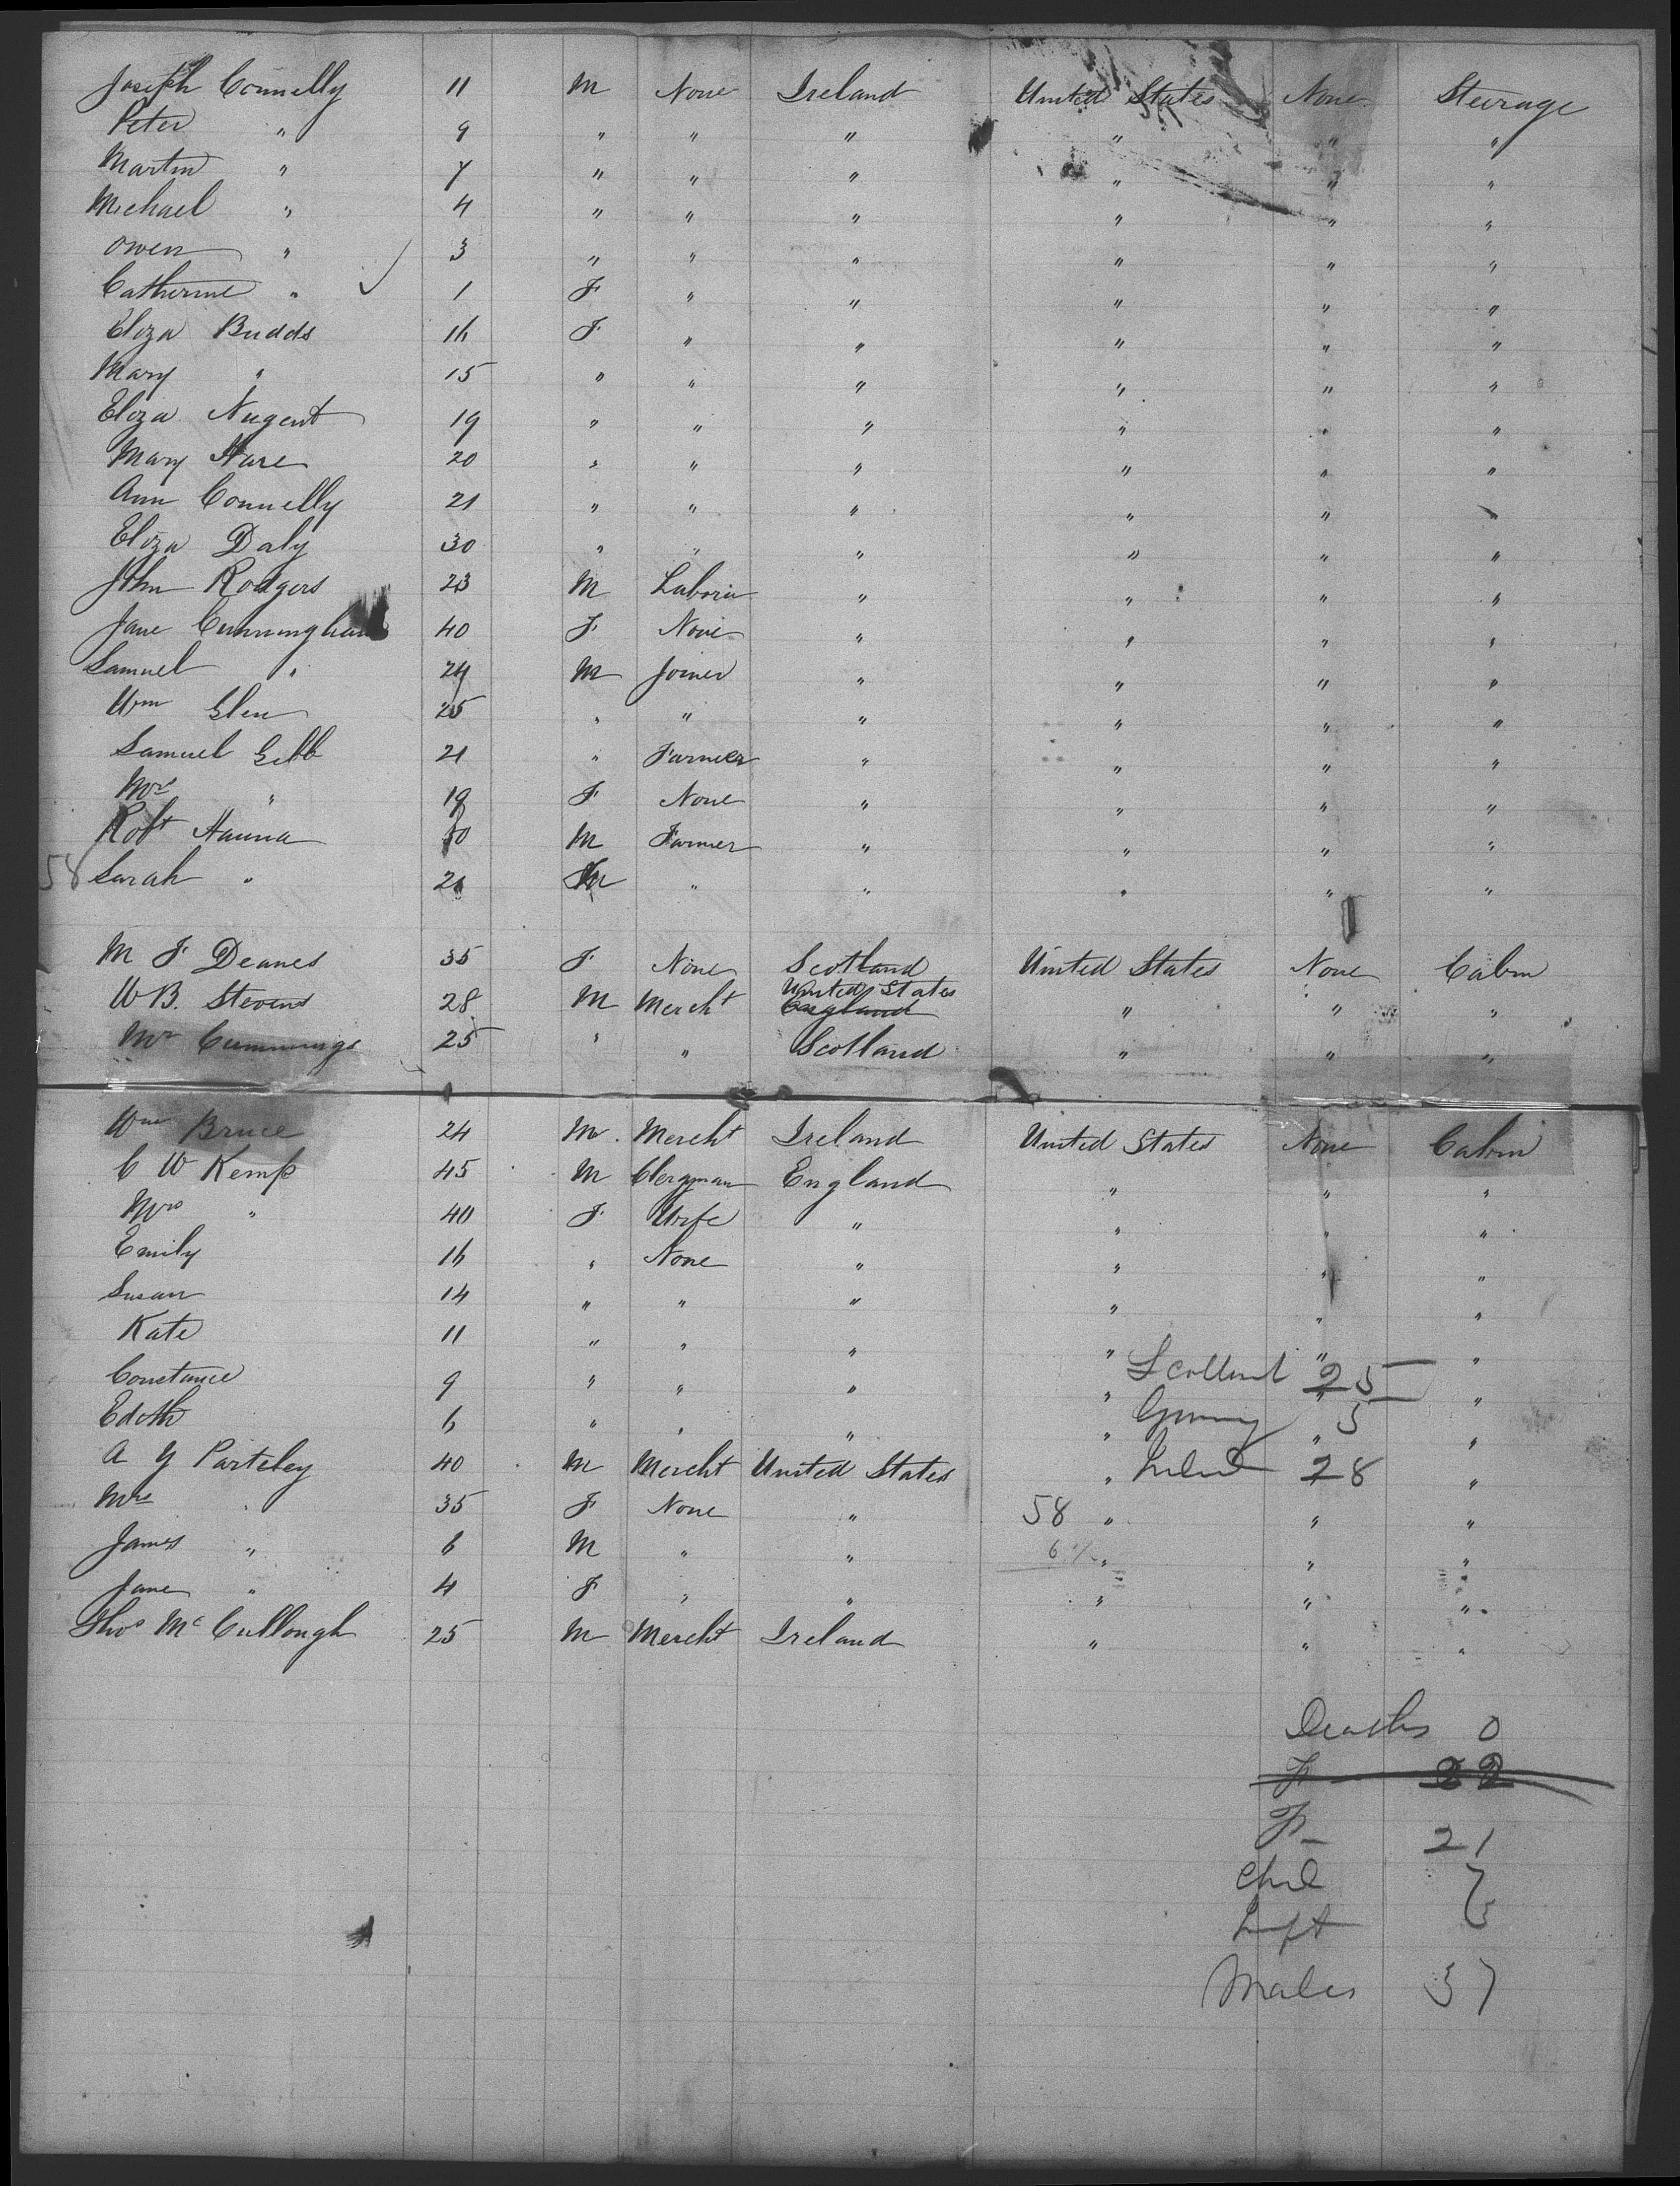 Joseph Connelly 11 M None Ireland United States None Steerage
Peter " 9 " " " " " "
Martin " 7 " " " " " "
Michael " 4 " " " " " "
Owen " 3 " " " " " "
Catherine " 1 F " " " " "
Eliza Budds 16 F " " " " "
Mary " 15 " " " " " "
Eliza Nugent 19 " " " " " "
Mary Hare 20 " " " " " "
Ann Connelly 21 " " " " " "
Eliza Daly 30 " " " " " "
John Rodgers 23 M Laborer " " " "
Jane Cunningham 40 F None " " " "
Samuel " 24 M Joiner " " " "
Wm Glen 25 " " " " " "
Samuel Gibb 21 " Farmer " " " "
Mrs " 19 F None " " " "
Robt Hanna M Farmer " " " "
58 Sarah " " " " " "
M F Deanes 35 F None Scotland United States None Cabin
W B. Stevens 28 M Mercht United States England " " "
Mr Cummings 25 " " Scotland " " "
Wm Bruce 24 M. Mercht Ireland United States None Cabin
C W Kemp 45 M Clergman England " " "
Mrs " 40 F Wife " " " "
Emily 16 " None " " " "
Susan 14 " " " " " "
Kate 11 " " " " " "
Constance 9 " " " " " "
Scotland 25
Edith 6 " " " " " "
5
A Y Parteley 40 M Mercht United States " " "
28
Mrs " 35 F None " " " "
58
James " 6 M " " " " "
Jane " 4 F " " " " "
Thos McCullough 25 M Mercht Ireland " " "
Deaths 0
F 22
F 21
Chil 7
Males 37